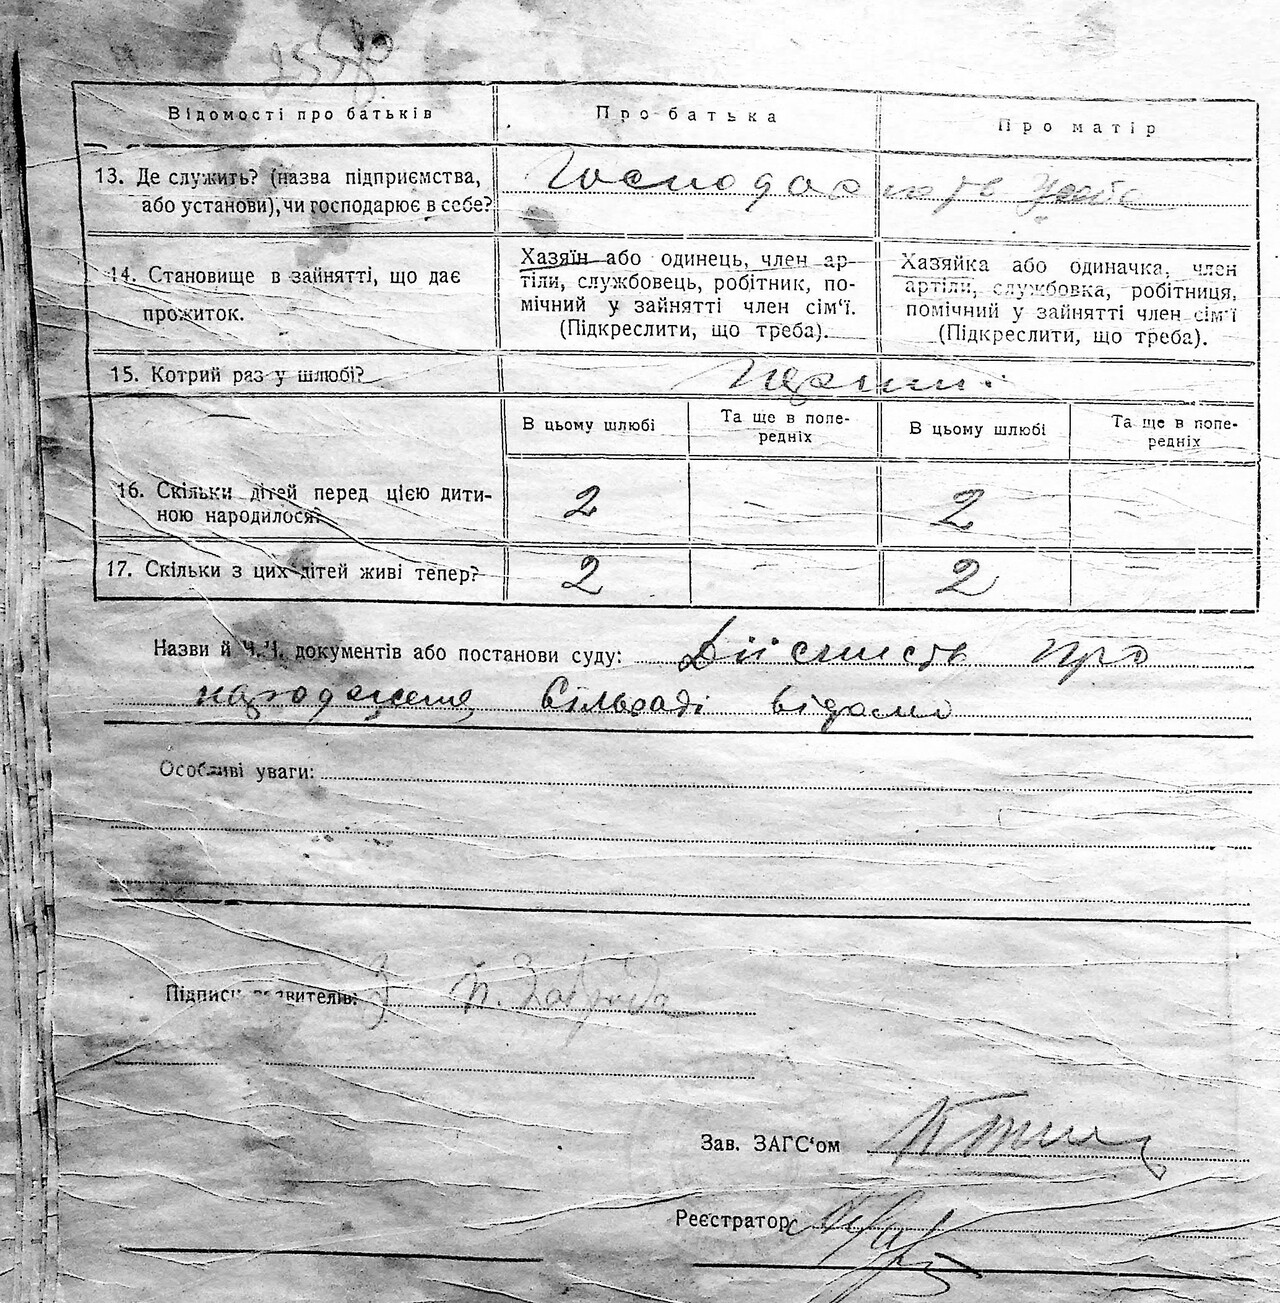 Відомості про батьків
Про батька
Про матір
13. Де служить? (назва підприємства,
або установи), чи господарює в себе?
14. Становище в зайнятті, що дає
прожиток.
Хазяїн або одинець, член ар-
тіли, службовець, робітник, по-
мічний у зайнятті член сім'ї.
(Підкреслити, що треба).
Хазяйка або одиначка, член
артіли, службовка, робітниця,
помічний у зайнятті член сім'ї
(Підкреслити, що треба).
15. Котрий раз у шлюбі?
В цьому шлюбі
Та ще в попе-
редніх
В цьому шлюбі
Та ще в попе-
редніх
16. Скільки дітей перед цією дити-
ною народилося?
2 — 2 —
17. Скільки з цих дітей живі тепер?
2 — 2 —
Назви й Ч.Ч. документів або постанови суду: про
сільраді відомо
Особливі уваги:
Підписи заявителів:
Зав. ЗАГС'ом
Реєстратор